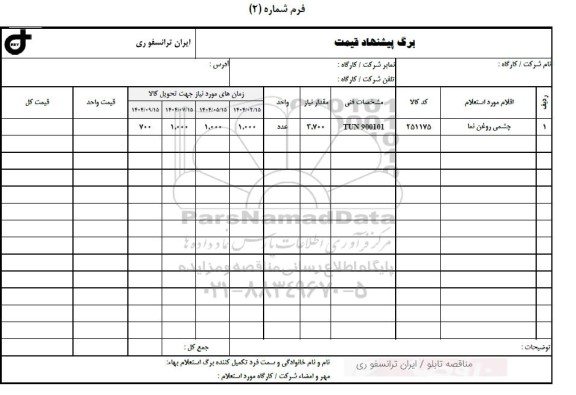 فرم شماره (۲)
برگ پیشنهاد قیمت
ایران ترانسفو ری
نام شرکت / کارگاه :
نمابر شرکت / کارگاه :
آدرس :
تلفن شرکت / کارگاه :
ردیف
اقلام مورد استعلام
کد کالا
مشخصات فنی
مقدار نیاز
واحد
زمان های مورد نیاز جهت تحویل کالا
قیمت واحد
قیمت کل
۱۴۰۴/۰۳/۱۵
۱۴۰۴/۰۵/۱۵
۱۴۰۴/۰۷/۱۵
۱۴۰۴/۰۹/۱۵
۱
چشمی روغن نما
۲۵۱۱۷۵
TUN 900101
۳,۷۰۰
عدد
۱,۰۰۰
۱,۰۰۰
۱,۰۰۰
۷۰۰
ParsNamadData
مرکز فرآوری اطلاعات پارس نماد داده ها
پایگاه اطلاع رسانی مناقصه و مزایده
۰۲۱-۸۸۳۴۹۶۷۰-۵
توضیحات :
جمع کل :
نام و نام خانوادگی و سمت فرد تکمیل کننده برگ استعلام بهاء:
مهر و امضاء شرکت / کارگاه مورد استعلام :
مناقصه تابلو / ایران ترانسفو ری